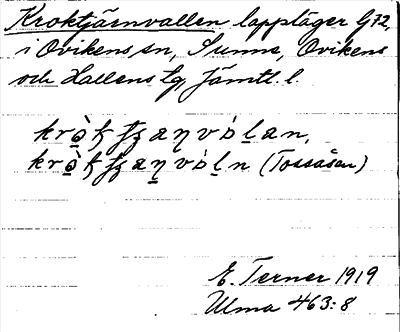 Kroktjärnvallen lappläger G72,
i Ovikens sn, Sunne, Ovikens
och Hallens tg, Jämtl. l.
(Tossåsen)
E. Terner 1919
Ulma 463:8